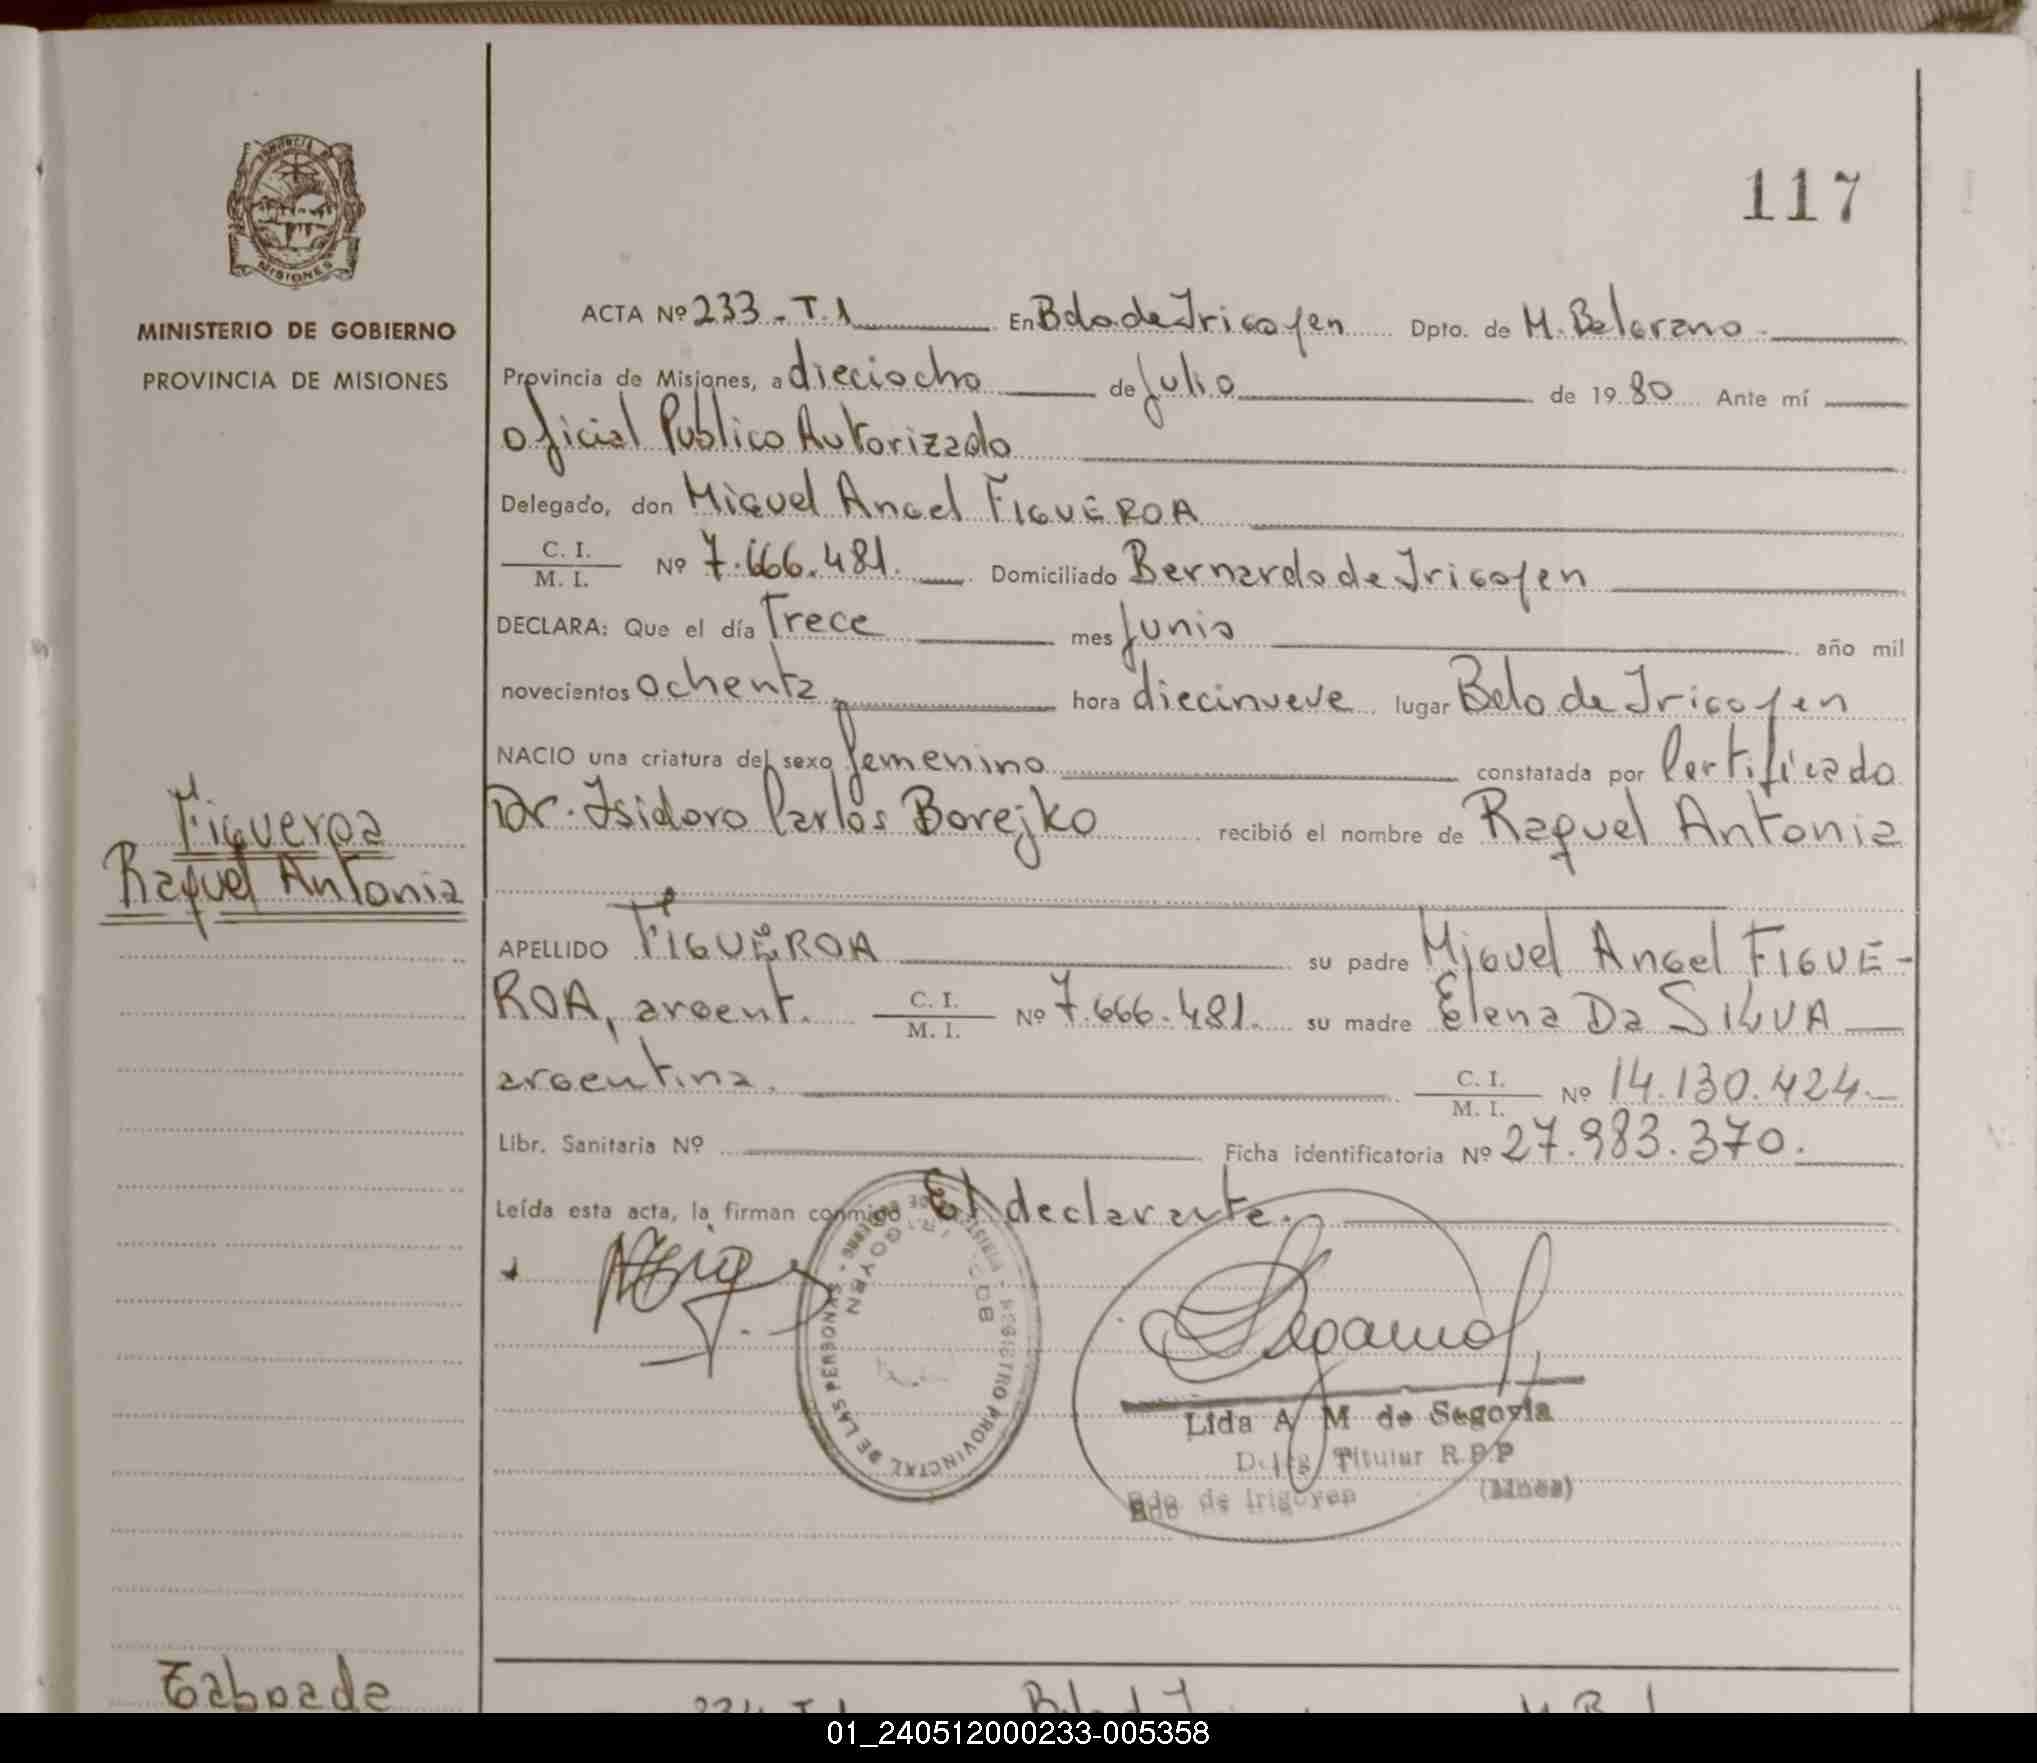 PROVINCIA DE
MISIONES
MINISTERIO DE GOBIERNO
PROVINCIA DE MISIONES
117
ACTA Nº 233 - T. 1 En Bdo de Irigoyen Dpto. de M. Belgrano
Provincia de Misiones, a dieciocho de Julio de 19 80 Ante mí
Oficial Publico Autorizado
Delegado, don Miguel Angel FIGUEROA
C. I. / M. I. Nº 7.666.481. Domiciliado Bernardo de Irigoyen
DECLARA: Que el día Trece mes Junio año mil
novecientos ochenta hora diecinueve lugar Bdo de Irigoyen
NACIO una criatura del sexo femenino constatada por Certificado
Dr. Isidoro Carlos Borejko recibió el nombre de Raquel Antonia
Figueroa
Raquel Antonia
APELLIDO FIGUEROA su padre Miguel Angel FIGUE-
ROA, argent. C. I. / M. I. Nº 7.666.481. su madre Elena Da SILVA
argentina. C. I. / M. I. Nº 14.130.424.
Libr. Sanitaria Nº Ficha identificatoria Nº 27.983.370.
Leída esta acta, la firman conmigo El declarante.
REGISTRO PROVINCIAL DE LAS PERSONAS
IRIGOYEN
Lida A M de Segovia
Deleg Titular R.P.P
Bdo de Irigoyen (Mnes)
Taboada
234 T. 1
01_240512000233-005358